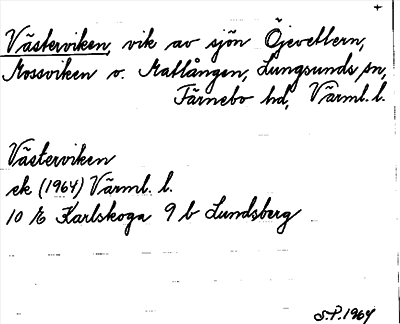 +
Västerviken, vik av sjön Öjevettern,
Mossviken v. Matlången, Lungsunds sn,
Färnebo hd, Värml. l.
Västerviken
ek (1964) Värml. l.
10 E Karlskoga 9 b Lundsberg
S.P. 1964